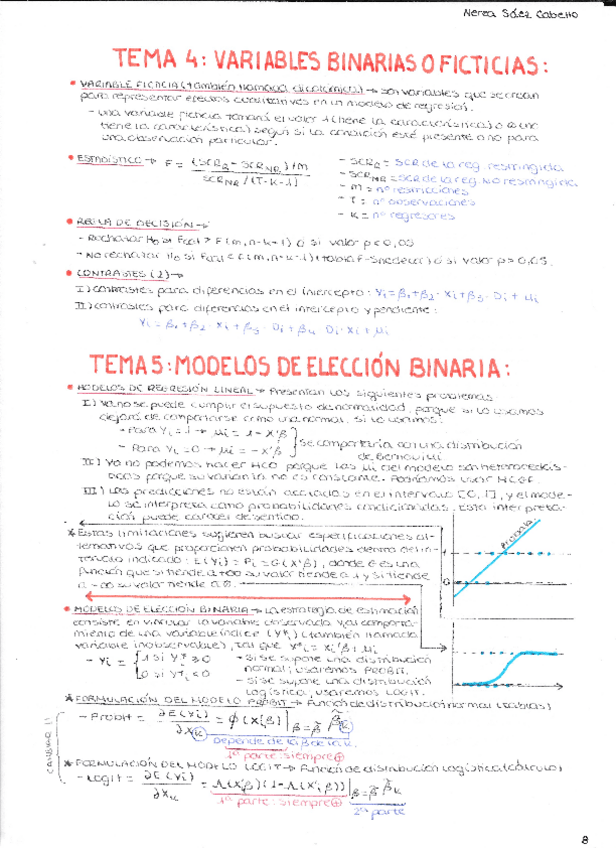 Nerea Sáez Cabello
TEMA 4: VARIABLES BINARIAS O FICTICIAS:
• VARIABLE FICTICIA (también llamada dicotómica) → son variables que se crean
para representar efectos cualitativos en un modelo de regresión.
- una variable ficticia tomará el valor 1 (tiene la característica) o 0 (no
tiene la característica) según si la condición esté presente o no para
una observación particular.
• ESTADÍSTICO → F = (SCR_R - SCR_NR) / m
SCR_NR / (T-K-1)
- SCR_R = SCR de la reg. restringida
- SCR_NR = SCR de la reg. No restringida
- m = nº restricciones
- T = nº observaciones
- K = nº regresores
• REGLA DE DECISIÓN →
- Rechazar H0 si Fcal > F(m, n-k-1) ó si valor p < 0,05
- No rechazar H0 si Fcal < F(m, n-k-1) (tabla F-Snedecor) ó si valor p > 0,05.
• CONTRASTES (2) →
I) contrastes para diferencias en el intercepto: Yi = β1 + β2 · Xi + β3 · Di + μi
II) contrastes para diferencias en el intercepto y pendiente:
Yi = β1 + β2 · Xi + β3 · Di + β4 Di · Xi + μi
TEMA 5: MODELOS DE ELECCIÓN BINARIA:
• MODELOS DE REGRESIÓN LINEAL → Presentan los siguientes problemas:
I) Ya no se puede cumplir el supuesto de normalidad, porque si lo usamos
dejará de comportarse como una normal. Si lo usamos:
- Para Yi = 1 → μi = 1 - X'β
- Para Yi = 0 → μi = -X'β
} se comportaría con una distribución
de Bernoulli
II) Ya no podemos hacer MCO porque las μi del modelo son heterocedás-
ticas porque su varianza no es constante. Podríamos usar MCGF.
III) Las predicciones no están acotadas en el intervalo [0, 1], y el mode-
lo se interpreta como probabilidades condicionadas. Esta interpreta-
ción puede carecer de sentido.
* Estas limitaciones sugieren buscar especificaciones al-
ternativas que proporcionen probabilidades dentro del in-
tervalo indicado: E(Yi) = Pi = G(X'β), donde G es una
función que si tiende a +∞ su valor tiende a 1 y si tiende
a -∞ su valor tiende a 0.
1
0
• MODELOS DE ELECCIÓN BINARIA → La estrategia de estimación
consiste en vincular la variable observada Yi al comporta-
miento de una variable índice (Y*i) (también llamada
variable inobservable), tal que Y*i = Xi'β + μi
- Yi = { 1 si Y*i ≥ 0
0 si Y*i < 0
- Si se supone una distribución
normal, usaremos PROBIT.
- Si se supone una distribución
logística, usaremos LOGIT.
* FORMULACIÓN DEL MODELO PROBIT → Función de distribución normal (tablas)
- Probit = ∂E(Yi) / ∂Xk = φ(X'iβ) | β=β̂ β̂k
Depende de la β de la k.
1ª parte: siempre ⊕
* FORMULACIÓN DEL MODELO LOGIT → Función de distribución logística (cálculo)
- Logit = ∂E(Yi) / ∂Xk = Λ(X'iβ)(1-Λ(X'iβ)) | β=β̂ β̂k
1ª parte: siempre ⊕
2ª parte
8